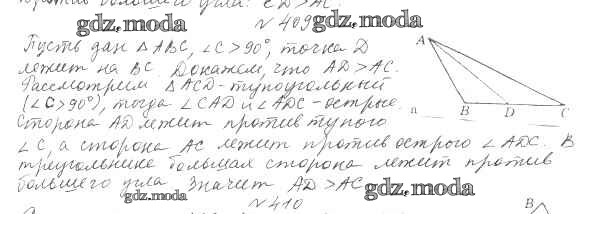 против большего угла: CD > AC.
N 409
gdz.moda
gdz.moda
Пусть дан △ABC, ∠C > 90°, точка D
лежит на BC. Докажем, что AD > AC.
Рассмотрим △ACD - тупоугольный
(∠C > 90°), тогда ∠CAD и ∠ADC - острые.
Сторона AD лежит против тупого
∠C, а сторона AC лежит против острого ∠ADC. В
треугольнике большая сторона лежит против
большего угла значит AD > AC
gdz.moda
gdz.moda
N 410
A
B
D
C
B